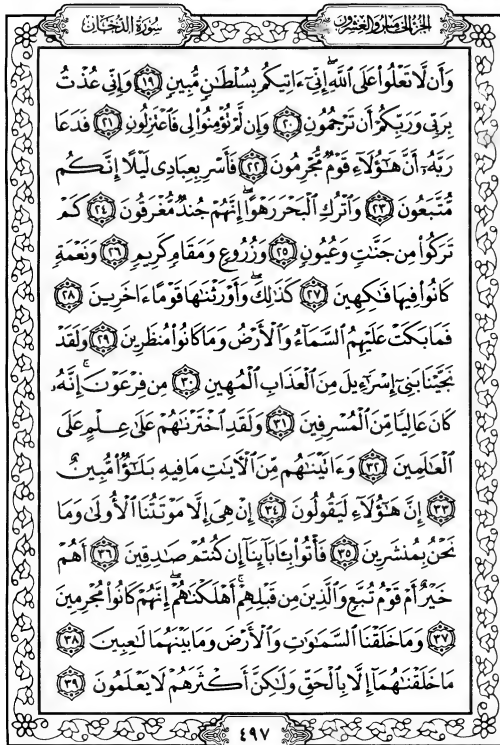 الجزء الخامس والعشرون
سورة الدخان
وَأَن لَّا تَعْلُوا۟ عَلَى ٱللَّهِ ۖ إِنِّىٓ ءَاتِيكُم بِسُلْطَٰنٍ مُّبِينٍ ١٩ وَإِنِّى عُذْتُ
بِرَبِّى وَرَبِّكُمْ أَن تَرْجُمُونِ ٢٠ وَإِن لَّمْ تُؤْمِنُوا۟ لِى فَٱعْتَزِلُونِ ٢١ فَدَعَا
رَبَّهُۥٓ أَنَّ هَٰٓؤُلَآءِ قَوْمٌ مُّجْرِمُونَ ٢٢ فَأَسْرِ بِعِبَادِى لَيْلًا إِنَّكُم
مُّتَّبَعُونَ ٢٣ وَٱتْرُكِ ٱلْبَحْرَ رَهْوًا ۖ إِنَّهُمْ جُندٌ مُّغْرَقُونَ ٢٤ كَمْ
تَرَكُوا۟ مِن جَنَّٰتٍ وَعُيُونٍ ٢٥ وَزُرُوعٍ وَمَقَامٍ كَرِيمٍ ٢٦ وَنَعْمَةٍ
كَانُوا۟ فِيهَا فَٰكِهِينَ ٢٧ كَذَٰلِكَ ۖ وَأَوْرَثْنَٰهَا قَوْمًا ءَاخَرِينَ ٢٨
فَمَا بَكَتْ عَلَيْهِمُ ٱلسَّمَآءُ وَٱلْأَرْضُ وَمَا كَانُوا۟ مُنظَرِينَ ٢٩ وَلَقَدْ
نَجَّيْنَا بَنِىٓ إِسْرَٰٓءِيلَ مِنَ ٱلْعَذَابِ ٱلْمُهِينِ ٣٠ مِن فِرْعَوْنَ ۚ إِنَّهُۥ
كَانَ عَالِيًا مِّنَ ٱلْمُسْرِفِينَ ٣١ وَلَقَدِ ٱخْتَرْنَٰهُمْ عَلَىٰ عِلْمٍ عَلَى
ٱلْعَٰلَمِينَ ٣٢ وَءَاتَيْنَٰهُم مِّنَ ٱلْـَٔايَٰتِ مَا فِيهِ بَلَٰٓؤٌا۟ مُّبِينٌ
٣٣ إِنَّ هَٰٓؤُلَآءِ لَيَقُولُونَ ٣٤ إِنْ هِىَ إِلَّا مَوْتَتُنَا ٱلْأُولَىٰ وَمَا
نَحْنُ بِمُنشَرِينَ ٣٥ فَأْتُوا۟ بِـَٔابَآئِنَآ إِن كُنتُمْ صَٰدِقِينَ ٣٦ أَهُمْ
خَيْرٌ أَمْ قَوْمُ تُبَّعٍ وَٱلَّذِينَ مِن قَبْلِهِمْ ۚ أَهْلَكْنَٰهُمْ ۖ إِنَّهُمْ كَانُوا۟ مُجْرِمِينَ
٣٧ وَمَا خَلَقْنَا ٱلسَّمَٰوَٰتِ وَٱلْأَرْضَ وَمَا بَيْنَهُمَا لَٰعِبِينَ ٣٨
مَا خَلَقْنَٰهُمَآ إِلَّا بِٱلْحَقِّ وَلَٰكِنَّ أَكْثَرَهُمْ لَا يَعْلَمُونَ ٣٩
٤٩٧